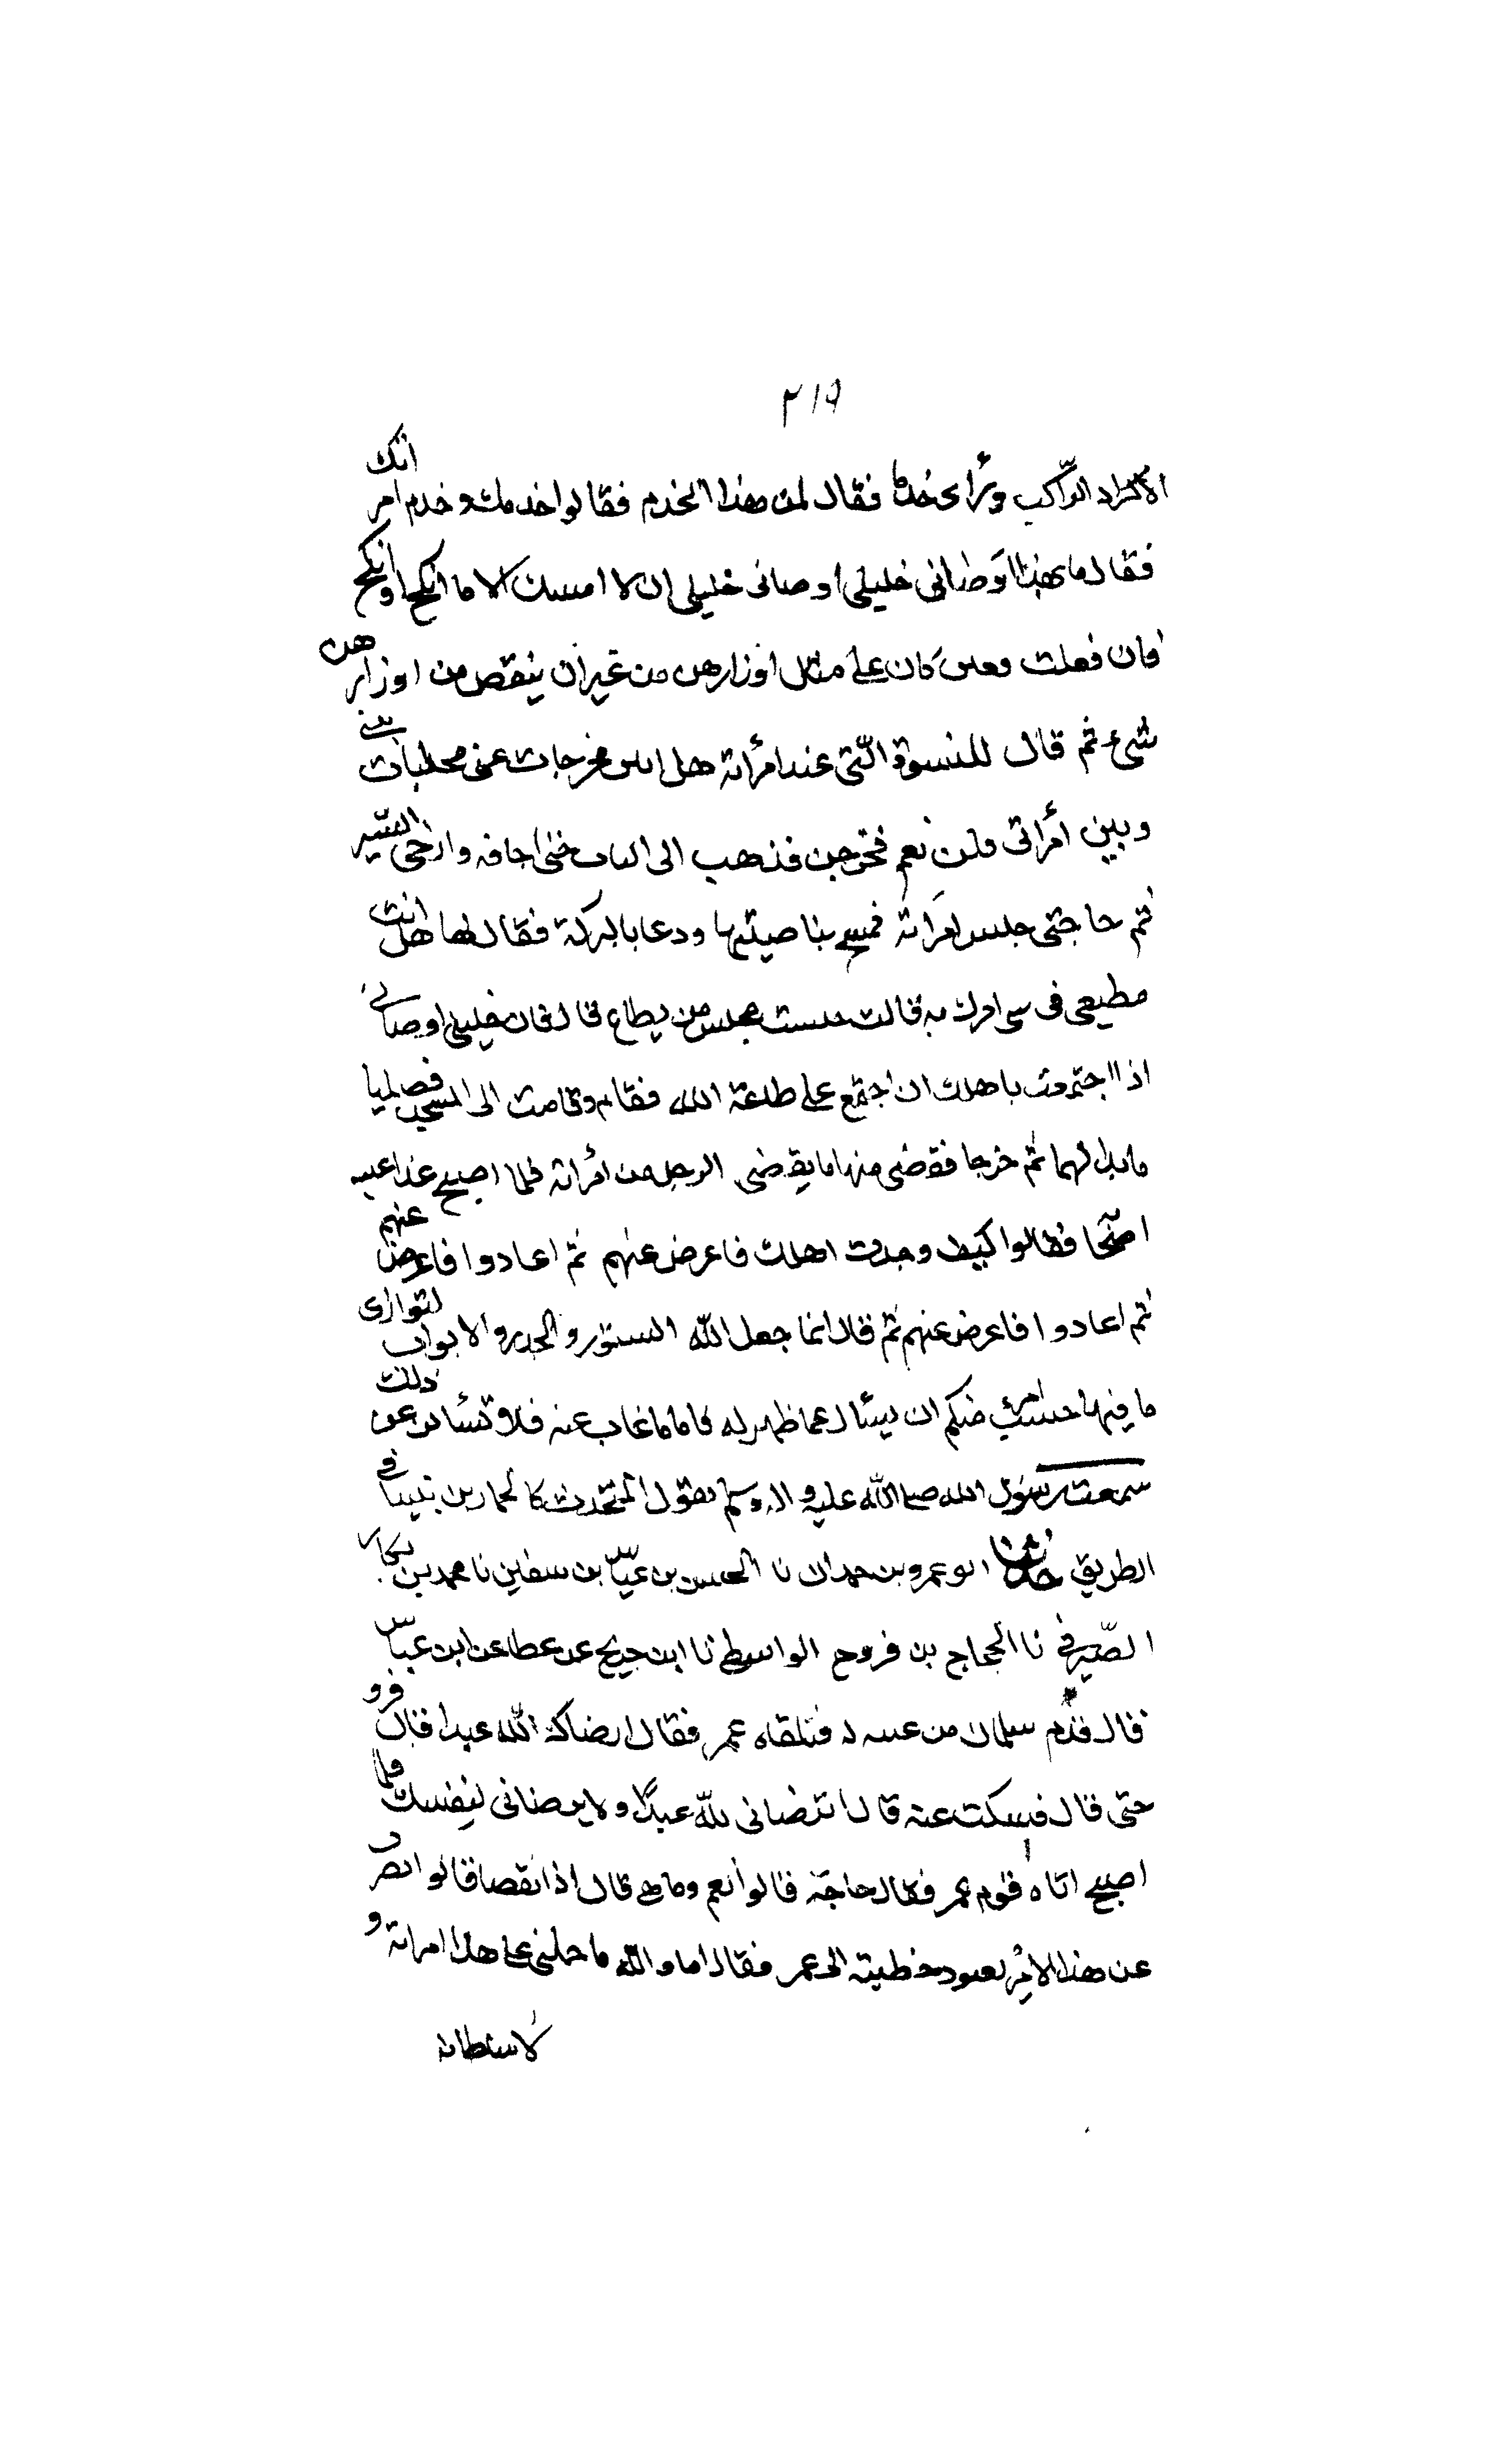 ٢١٩
الاكزاد الراكب ورأى خدما فقال لمن هذا الخدم فقالوا خدمك وخدم امرأتك
فقال ما بهذا اوصانى خليلى اوصانى خليلى ان لا امسك الا ما انكح او انكح
فان فعلت فعلى كان على مثل اوزارهن من غير ان ينقص من اوزارهن
شئ ثم قال للنسوة التى عند امرأته هل انتن مخرجات عنى مخليات بينى
وبين امرأتى قلن نعم فخرجن فذهب الى الباب حتى اجافه وارخى الستر
ثم جا حتى جلس امرأته فمسح بناصيتها ودعا بالبركة فقال لها هل انت
مطيعى فى شى امرك به قالت جلست مجلس من يطاع قال فان خليلى اوصانى
اذا اجتمعت باهلك ان اجتمع على طاعة الله فقام وقامت الى المسجد فصليا
ما بدا لهما ثم خرجا فقضى منها ما يقضى الرجل من امرأته فلما اصبح غدا عليه
اصحا فقالوا كيف وجدت اهلك فاعرض عنهم ثم اعادوا فاعرض عنهم
ثم اعادوا فاعرض عنهم ثم قال انما جعل الله الستور والخدر والابواب لتوارى
ما فيها حسب امرئ منكم ان يسئال عما ظهر له فاما ما غاب عنه فلا تسئالن عن ذلك
سمعت رسول الله صلى الله عليه واله وسلم يقول المتحدث كالحمارين فى
الطريق حدثنا ابو عمرو بن حمدان نا الحسن بن سفين نا محمد بن بكار
الصيرفى نا الحجاج بن فروح الواسطى نا ابن جريح عن عطا عن ابن عباس
قال قدم سلمان من فتلقاه عمر فقال ارضاك الله عبدا قال فزو
حتى قال فسكت عنه قال اترضانى لله عبدا ولا ترضانى لنفسك فلما
اصبح اتاه قوم عمر فقال حاجة قالوا نعم وما هى قال اذا تقضا قالوا تضرب
عن هذا الامر يعنون خطبته الى عمر فقال اما والله ما حملنى على هذا امراته و
لا سلطانه